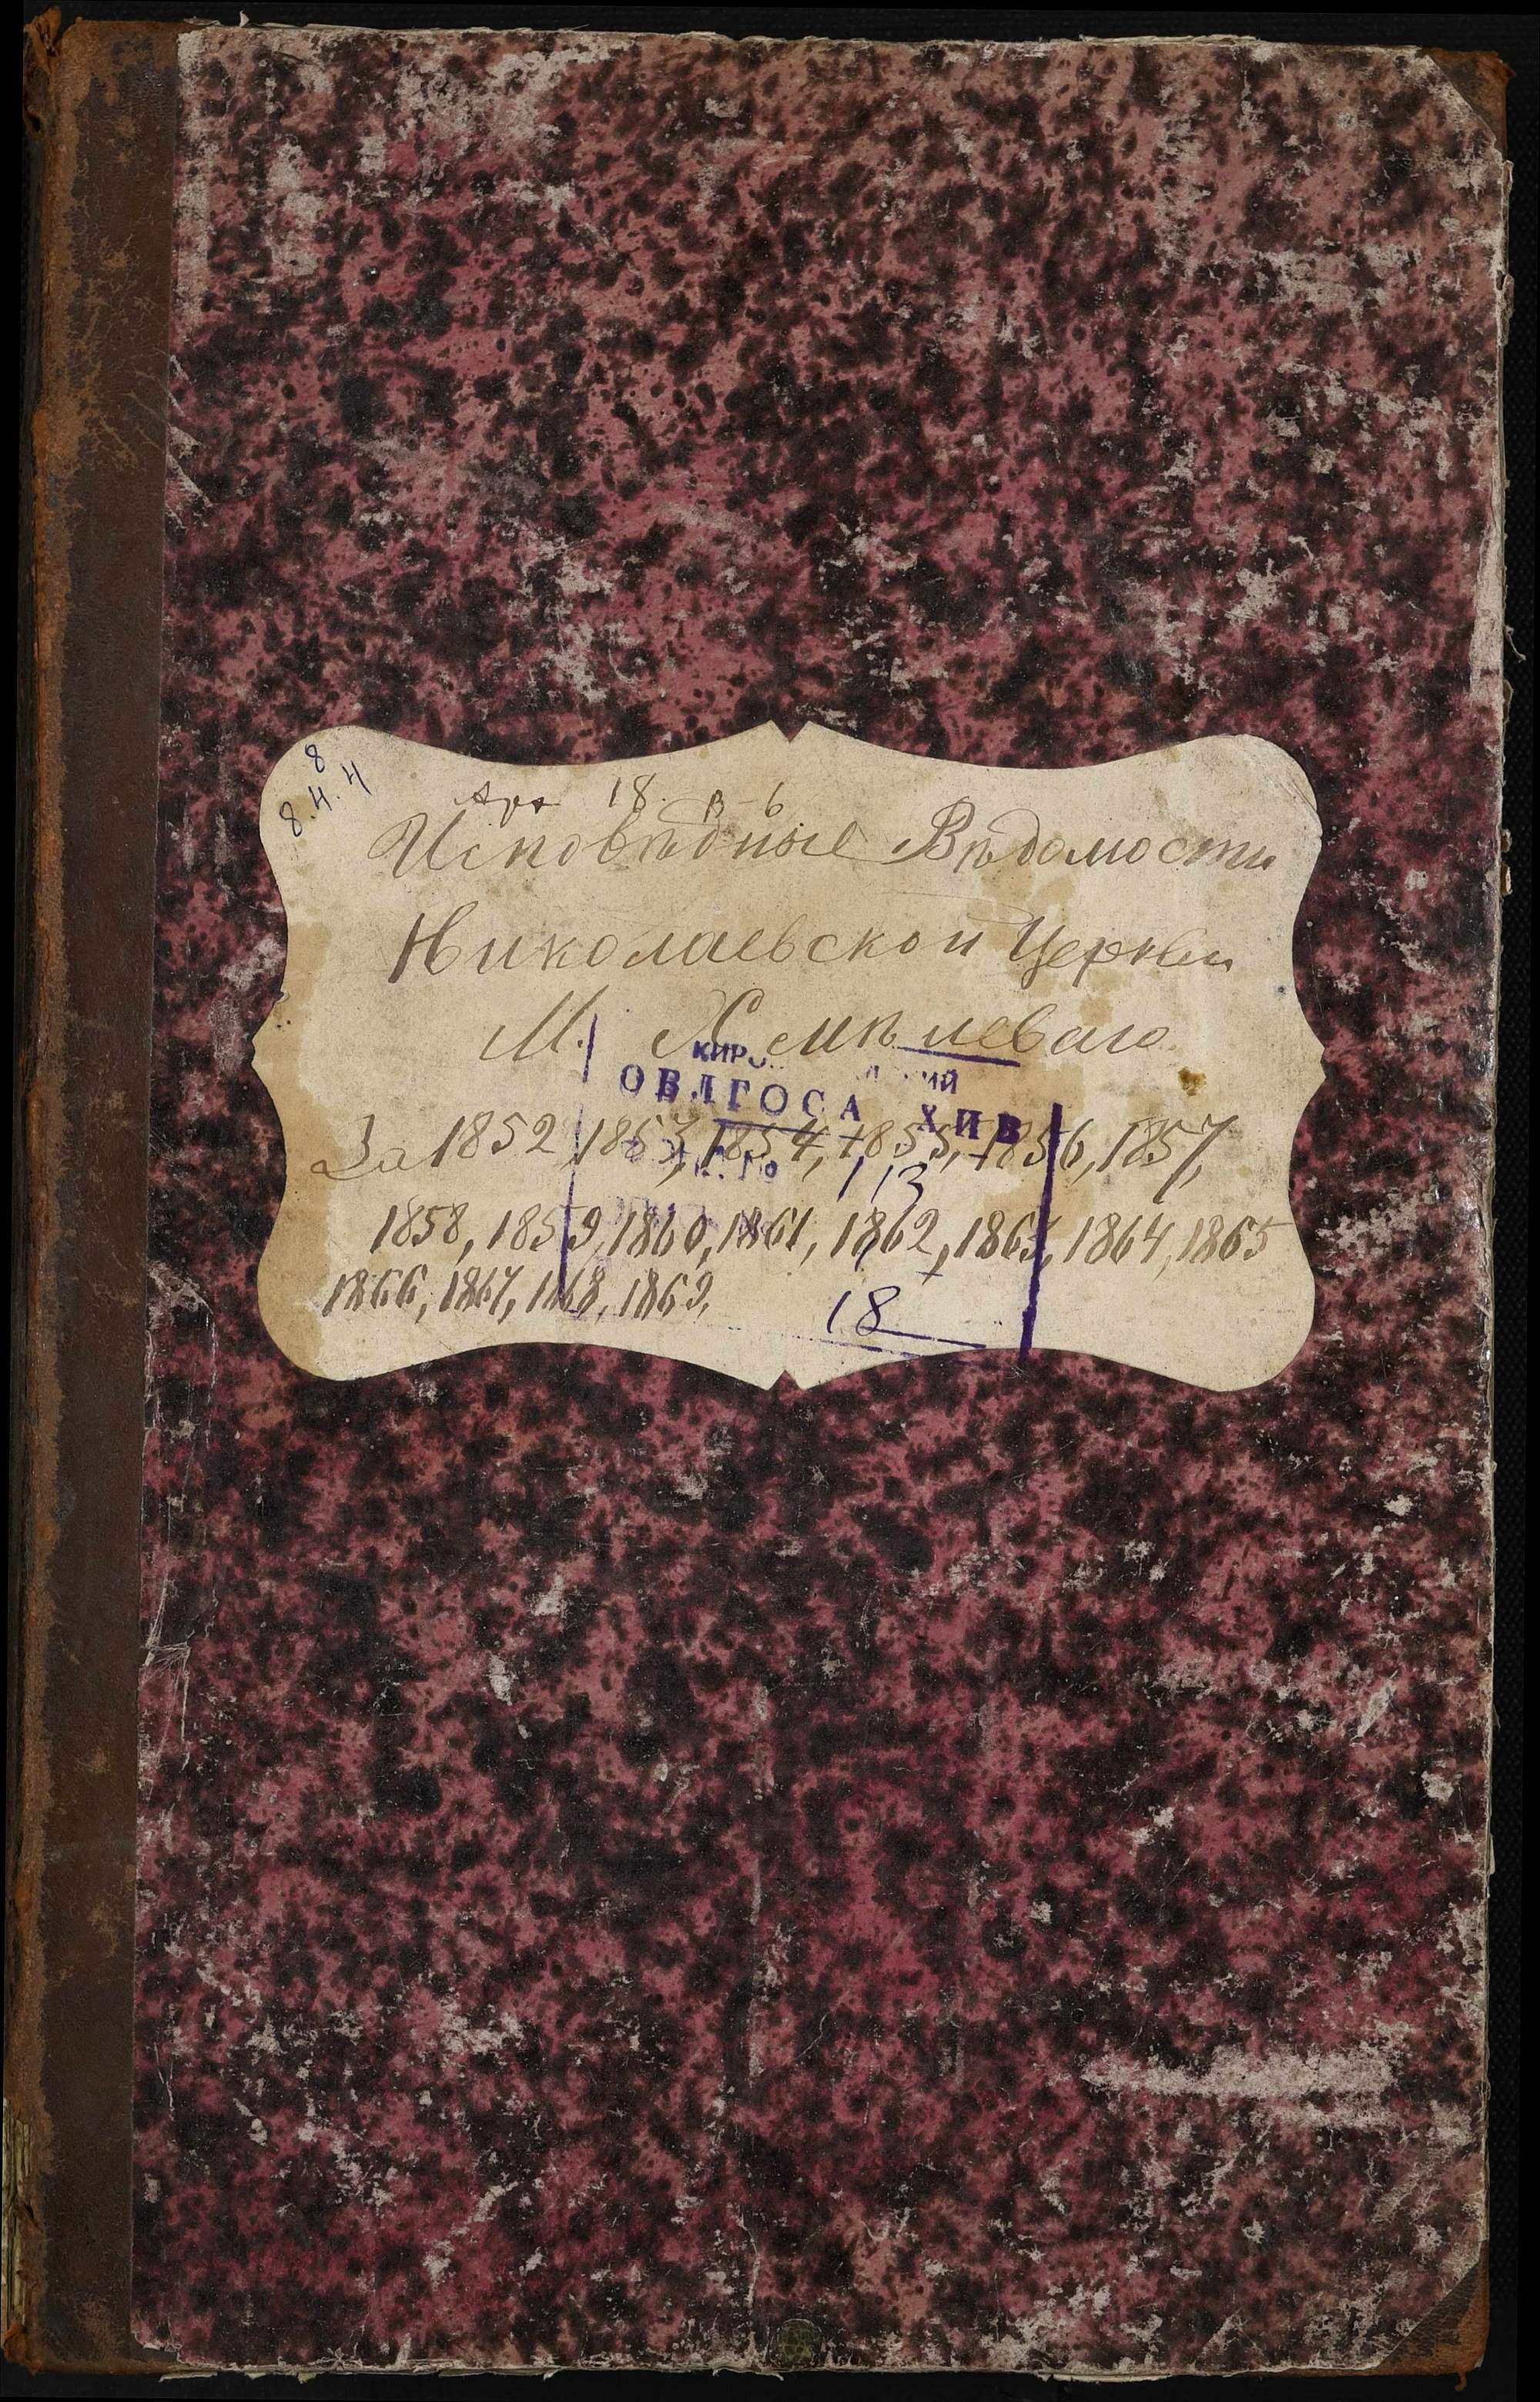 8
8.Н.4
Арх 18. В-6
Исповѣдные Вѣдомости
Николаевской Церкви
М. Хмѣлеваго
ОБЛГОСА ХИВ
За 1852, 1853, 1854, 1855, 1856, 1857,
113
1858, 1859, 1860, 1861, 1862, 1863, 1864, 1865
1866, 1867, 1868, 1869,
18